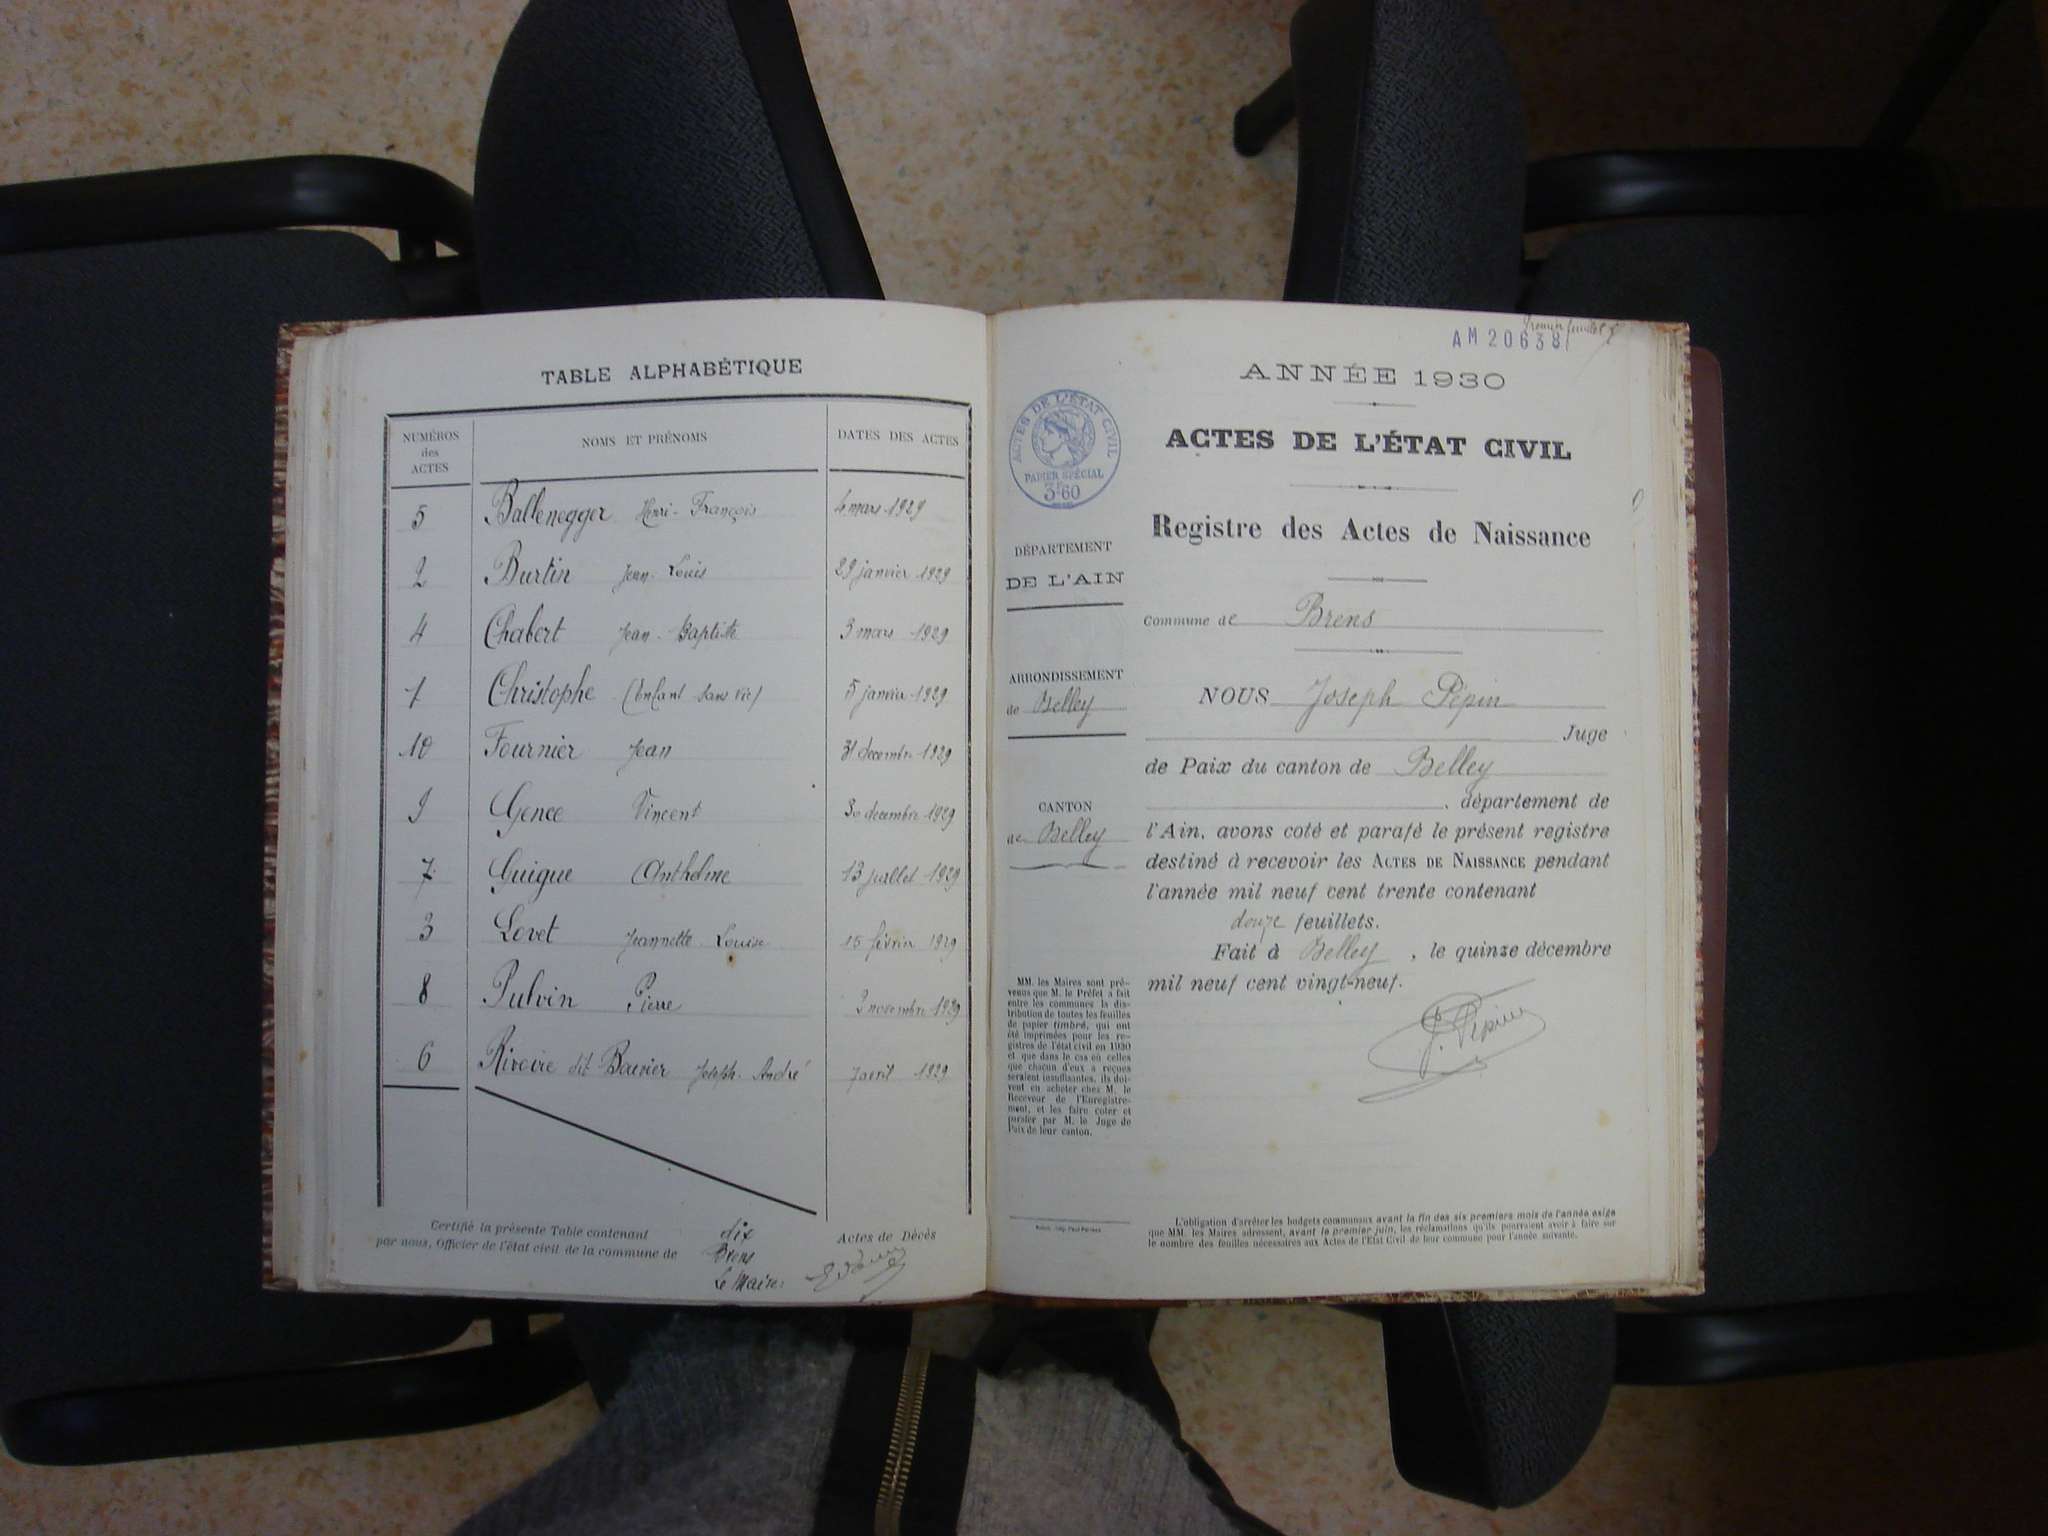 TABLE ALPHABÉTIQUE
NUMÉROS des ACTES NOMS ET PRÉNOMS DATES DES ACTES
5 Ballenegger Henri-François 4 mars 1929
2 Burtin Jean-Louis 29 janvier 1929
4 Chabert Jean-Baptiste 3 mars 1929
1 Christophe (Enfant sans vie) 5 janvier 1929
10 Fournier Jean 31 décembre 1929
9 Gence Vincent 30 décembre 1929
7 Guigue Anthelme 13 juillet 1929
3 Lovet Jeannette Louise 15 février 1929
8 Pulvin Pierre 2 novembre 1929
6 Rivoire dit Bavier Joseph-André 7 avril 1929
Certifié la présente Table contenant dix Actes de Décès
par nous, Officier de l'état civil de la commune de Brens
Le Maire:
Premier feuillet
AM 20638
ANNÉE 1930
ACTES DE L'ÉTAT CIVIL
PAPIER SPÉCIAL
3F60
ACTES DE L'ÉTAT CIVIL
Registre des Actes de Naissance
DÉPARTEMENT
DE L'AIN
Commune de Brens
ARRONDISSEMENT
de Belley
CANTON
de Belley
NOUS Joseph Pépin
Juge
de Paix du canton de Belley
, département de
l'Ain, avons coté et parafé le présent registre
destiné à recevoir les ACTES DE NAISSANCE pendant
l'année mil neuf cent trente contenant
douze feuillets.
Fait à Belley, le quinze décembre
mil neuf cent vingt-neuf.
J. Pépin
MM. les Maires sont pré-
venus que M. le Préfet a fait
entre les communes la dis-
tribution de toutes les feuilles
de papier timbré, qui ont
été imprimées pour les re-
gistres de l'état civil en 1930
et que dans le cas où celles
que chacun d'eux a reçues
seraient insuffisantes, ils doi-
vent en acheter chez M. le
Receveur de l'Enregistre-
ment, et les faire coter et
parafer par M. le Juge de
Paix de leur canton.
L'obligation d'arrêter les budgets communaux avant la fin des six premiers mois de l'année exige
que MM. les Maires adressent, avant le premier juin, les réclamations qu'ils pourraient avoir à faire sur
le nombre des feuilles nécessaires aux Actes de l'Etat Civil de leur commune pour l'année suivante.